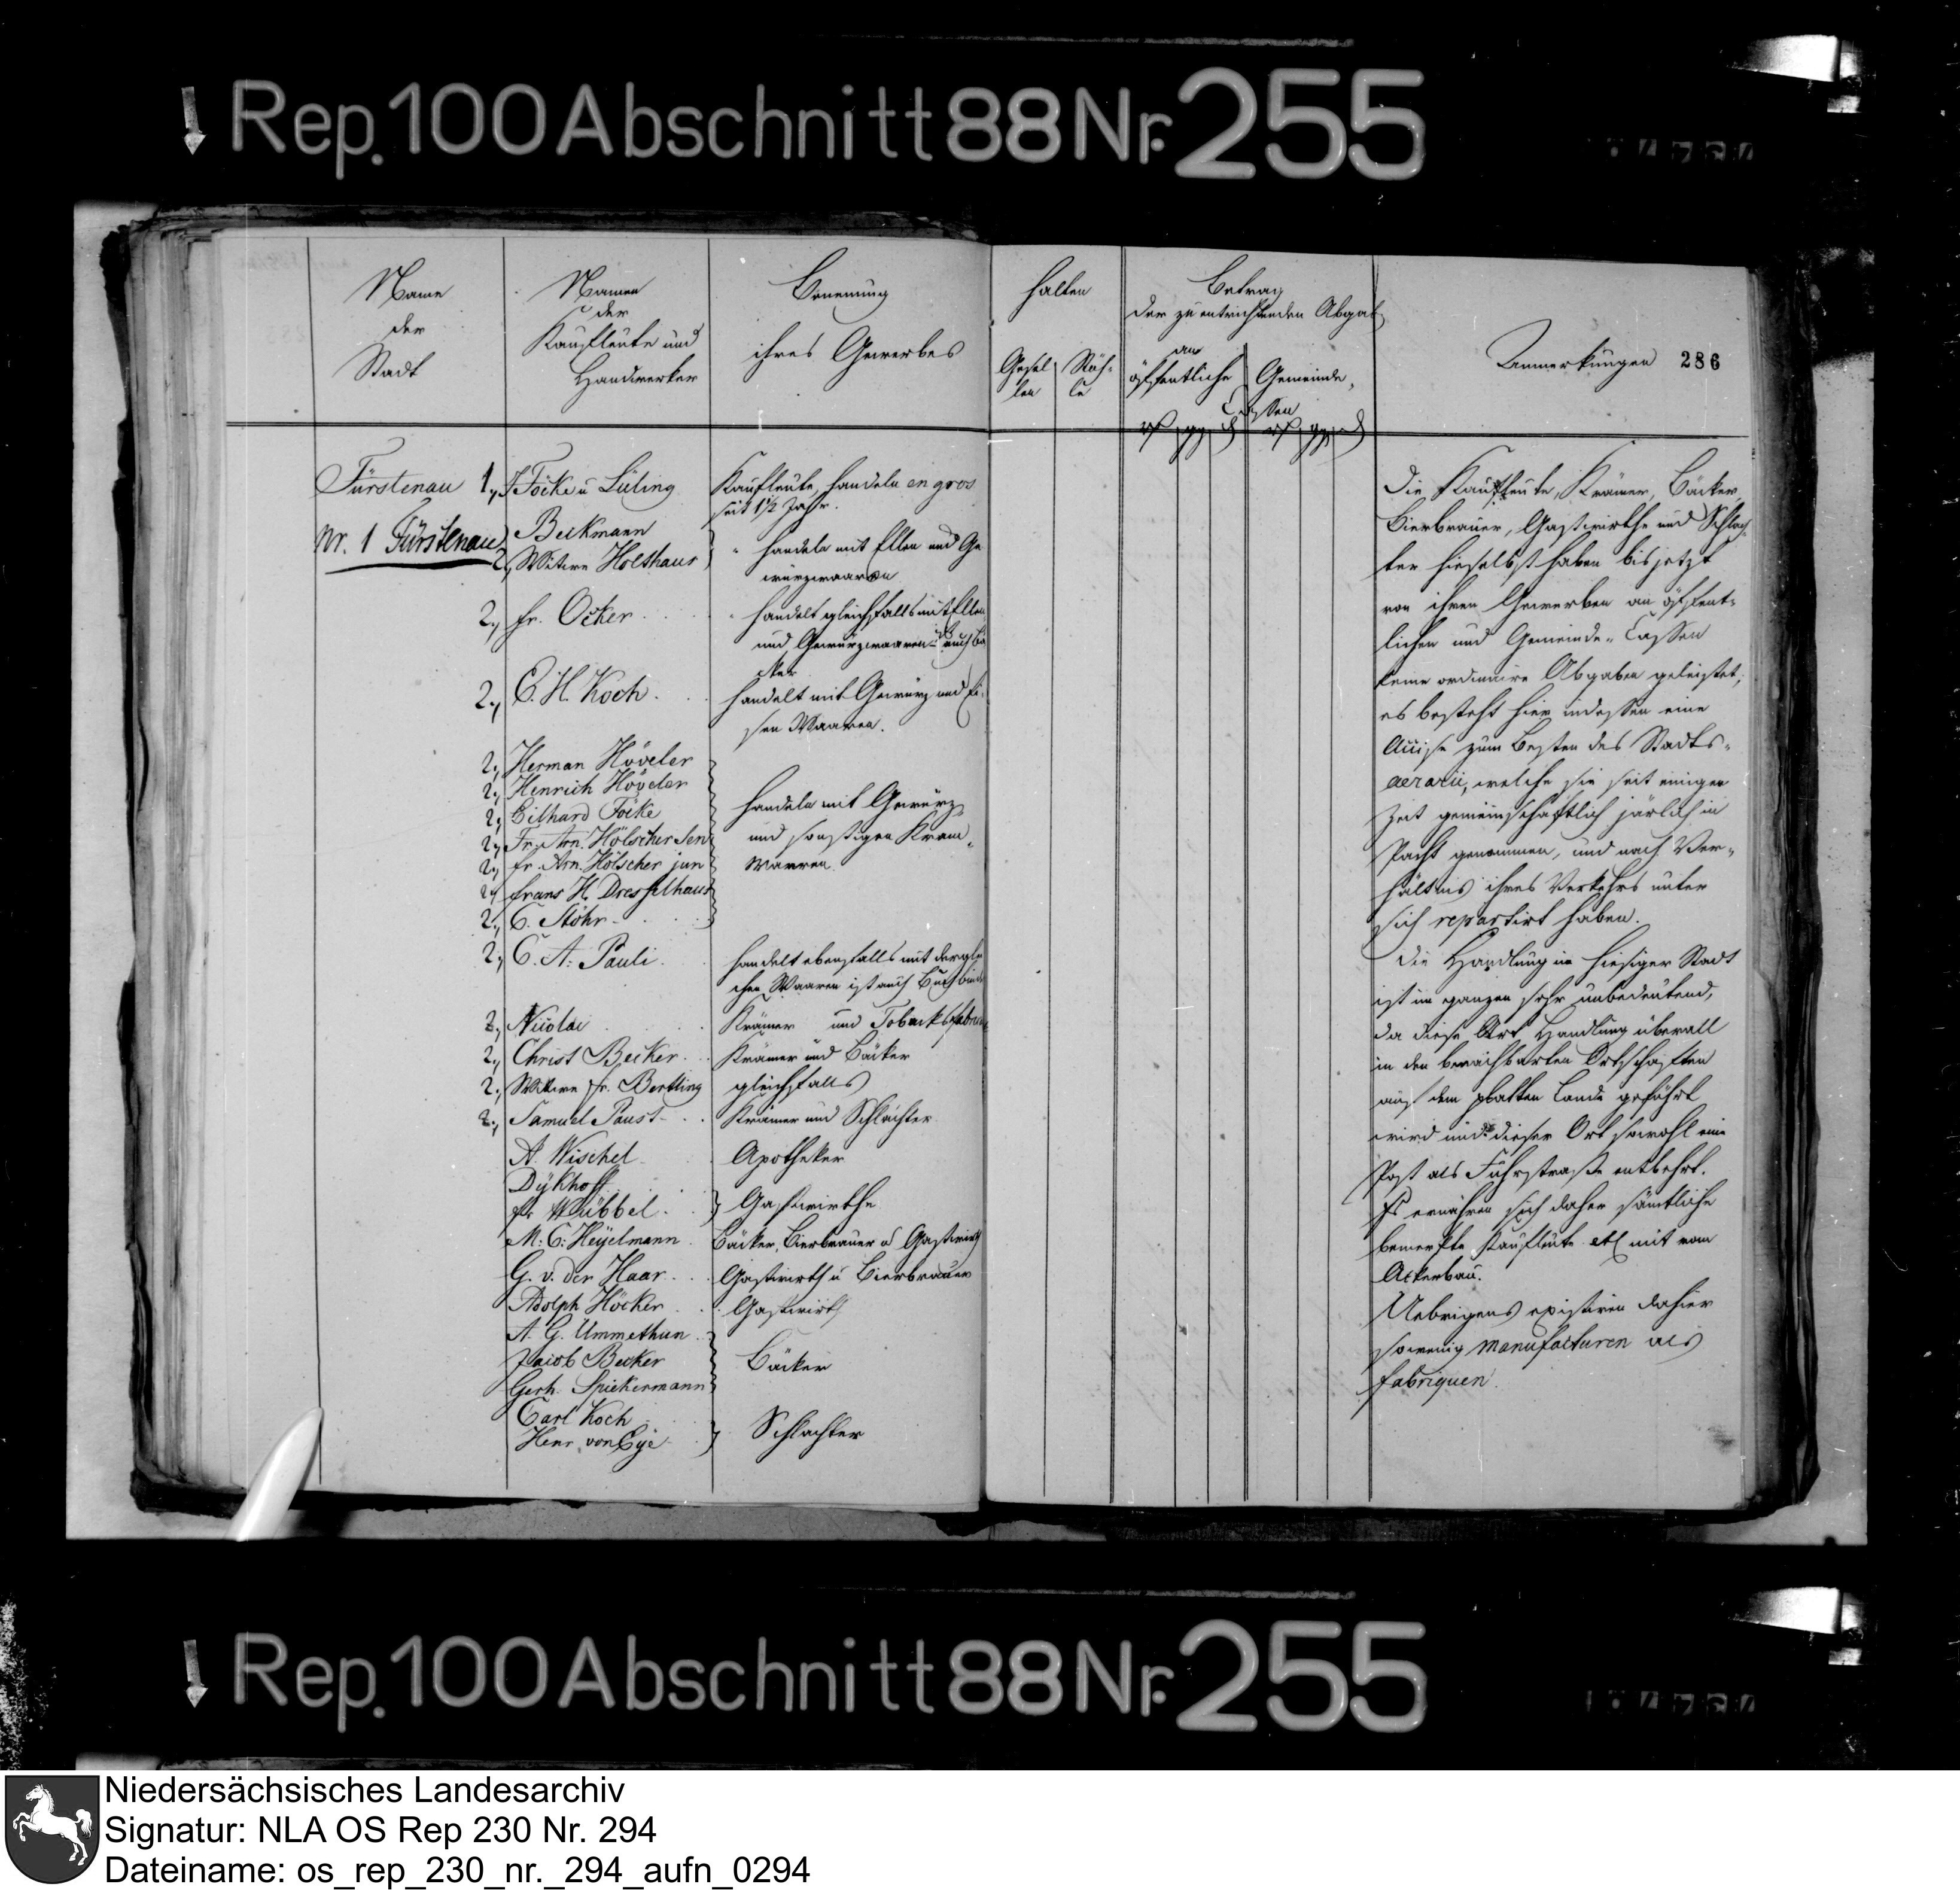 Rep. 100 Abschnitt 88 Nr. 255
Name
der
Stadt
Namen
der
Kaufleute und
Handwerker
Benennung
ihres Gewerbes
halten
Gesel
len
Betrag
der zu entrichtenden Abgab
an
öffentliche
Gemeinde
Cassen
Anmerkungen 286
Fürstenau 1., Focke u Lüling
Kaufleute, handeln en gros
seit 1½ Jahr.
Nr. 1 Fürstenau
Beckmann
2., Wittwe Holthaus
handeln mit Ellen und Ge
würzwaaren
2., fr. Ocker
handelt gleichfalls mit Ellen
und Gewürzwaaren ist auch Bä
cker
2., C. H. Koch
handelt mit Gewürz und Ei
sen Waaren.
2., Herman Höveler
2., Henrich Höveler
2., Eilhard Focke
2., Fr. Arn. Hölscher Sen
2., fr. Arn. Hölscher jun
2., frans H. Dresselhaus
2., C. Stöhr
handeln mit Gewürz
und sonstigen Kram
Waaren
2., C. A. Pauli
handelt ebenfalls mit derglei
chen Waaren ist auch Buchbinder
2., Nicolai
Krämer und Tobacksfabric
2., Christ Becker
Krämer und Bäcker
2., Wittwe fr. Bertling
gleichfalls
2., Samuel Paust
Krämer und Schlächter
A. Wischel
Apotheker
Dykhoff
fr Wübbel
Gastwirthe
M. C. Heyelmann
Bäcker, Bierbrauer u Gastwirth
G. v. der Haar
Gastwirth u Bierbrauer
Adolph Höcker
Gastwirth
A. G. Ummethun
Jacob Becker
Gerh. Spiekermann
Bäcker
Carl Koch
Henr. von Eye
Schlachter
Die Kaufleute, Krämer, Bäcker,
Bierbrauer, Gastwirthe und Schlach
ter hieselbst haben bis jetzt
von ihren Gewerben an öffent-
lichen und Gemeinde-Cassen
keine ordinaire Abgaben geleistet,
es besteht hier indessen eine
Accise zum Besten des Stadts-
aerarii, welche sie seit einiger
Zeit gemeinschaftlich järlich in
Pacht genommen, und nach Ver-
hältnis ihres Verkehrs unter
sich repartirt haben.
Die Handlung in hiesiger Stadt
ist im ganzen sehr unbedeutend,
da diese Art Handlung überall
in den benachbarten Ortschaften
auf dem platten Lande geführt
wird und dieser Ort sowohl eine
Post als Fuhrstraße entbehrt.
Es ernähren sich daher sämtliche
bemerkte Kaufleute etc mit vom
Ackerbau.
Uebrigens existiren dahier
sowenig manufacturen als
fabriquen.
Rep. 100 Abschnitt 88 Nr. 255
Niedersächsisches Landesarchiv
Signatur: NLA OS Rep 230 Nr. 294
Dateiname: os_rep_230_nr._294_aufn_0294